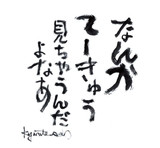 なんか
てーきゅう
見ちゃうんだ
よなあ